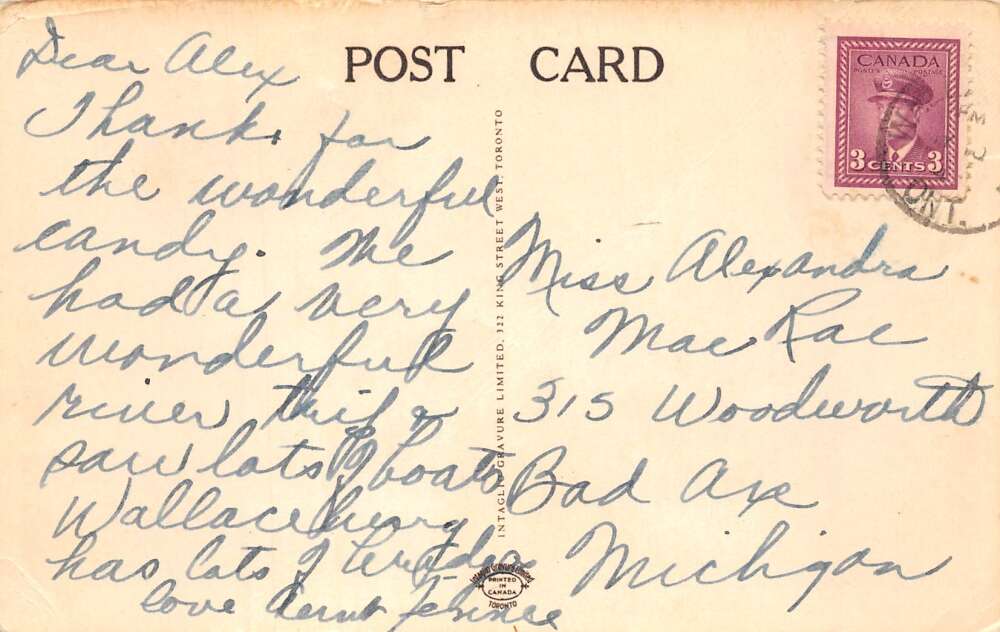 POST CARD
Dear Alex
Thanks for
the wonderful
candy. We
had a very
wonderful
river trip &
saw lots of boats
Wallaceburg
has lots of
love Aunt
Miss Alexandra
Mac Rae
315 Woodworth
Bad Axe
Michigan
CANADA
POSTES POSTAGE
3 CENTS 3
W
PM
2
ONT.
INTAGLIO GRAVURE LIMITED, 322 KING STREET WEST, TORONTO
Intaglio Gravure Limited
PRINTED
IN
CANADA
TORONTO